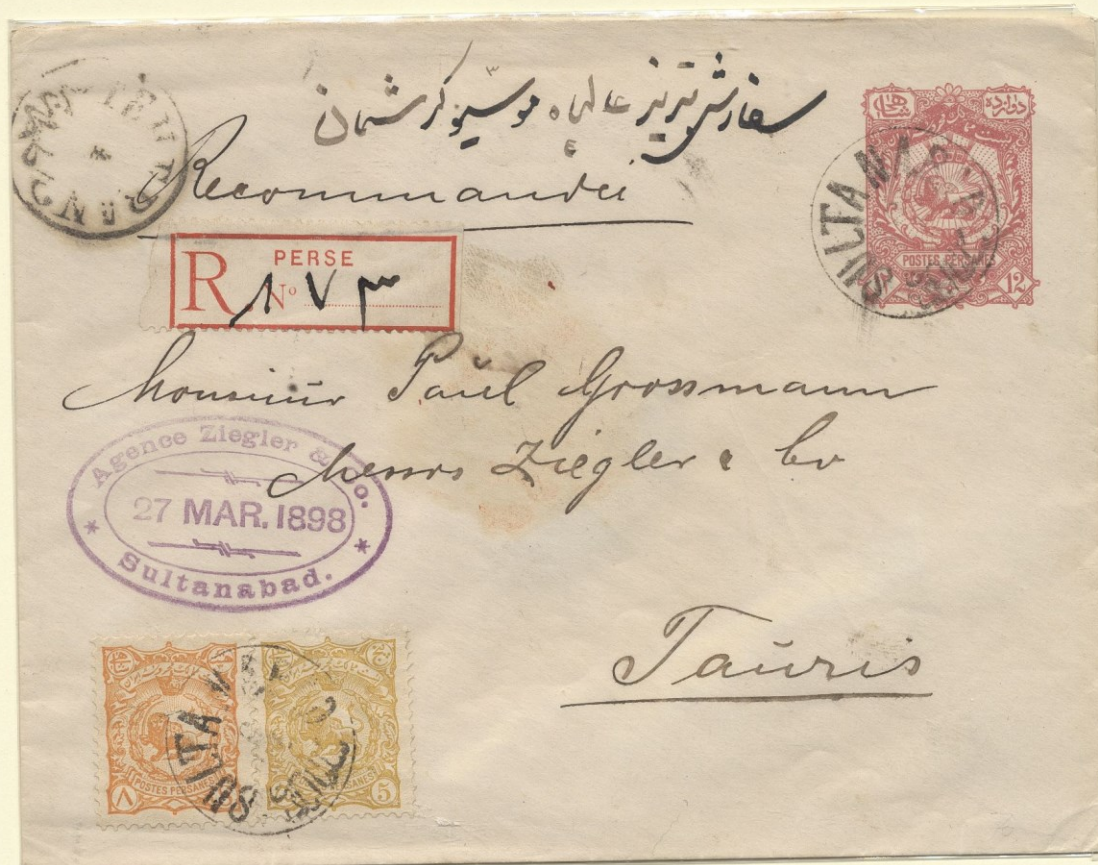 سفارش تبریز عالیجاه موسیو کرسمان
Recommandée
TEHERAN
R PERSE
Nº ۱۷۳
دوازده شاهی
SULTANABAD
POSTES PERSANES
12
Monsieur Paul Grossmann
Messrs Ziegler & Co
Agence Ziegler & Co.
27 MAR. 1898
Sultanabad.
Tauris
۸ POSTES PERSANES
5
SULTANABAD